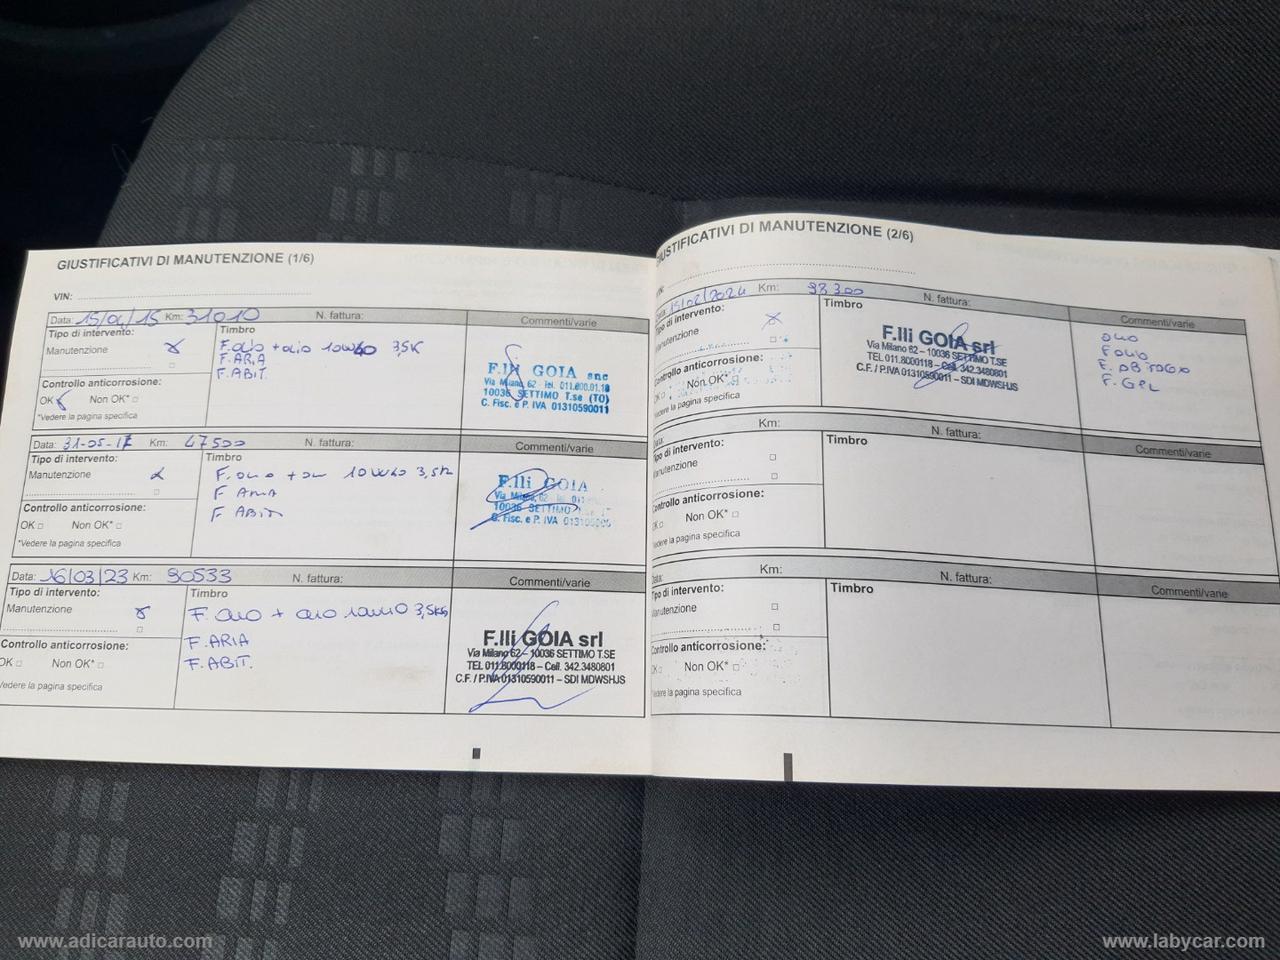 GIUSTIFICATIVI DI MANUTENZIONE (1/6)
VIN:
Data: 15/04/15 Km: 31010 N. fattura: Commenti/varie
Tipo di intervento: Timbro
Manutenzione
F. olio + olio 10W40 3,5K
F. ARIA
F. ABIT.
Controllo anticorrosione:
OK Non OK*
*Vedere la pagina specifica
F.lli GOIA snc
Via Milano, 62 - Tel. 011.800.01.18
10036 SETTIMO T.se (TO)
C. Fisc. e P. IVA 01310590011
Data: 31-05-17 Km: 47500 N. fattura: Commenti/varie
Tipo di intervento: Timbro
Manutenzione
10W40 3,5K
F ARIA
F ABIT
Controllo anticorrosione:
OK Non OK*
*Vedere la pagina specifica
F.lli GOIA
Via Milano, 62
10036 SETTIMO
C. Fisc. e P. IVA
Data: 16/03/23 Km: 90533 N. fattura: Commenti/varie
Tipo di intervento: Timbro
Manutenzione
F. olio + olio 3,5KG
F. ARIA
F. ABIT.
Controllo anticorrosione:
OK Non OK*
Vedere la pagina specifica
F.lli GOIA srl
Via Milano 62 – 10036 SETTIMO T.SE
TEL 011.8000118 – Cell. 342.3480801
C.F. / P.IVA 01310590011 – SDI MDWSHJS
GIUSTIFICATIVI DI MANUTENZIONE (2/6)
VIN:
Data: 15/02/2024 Km: 98300 N. fattura: Commenti/varie
Tipo di intervento: Timbro
Manutenzione
Controllo anticorrosione:
OK Non OK*
*Vedere la pagina specifica
F.lli GOIA srl
Via Milano 62 – 10036 SETTIMO T.SE
TEL 011.8000118 – Cell. 342.3480801
C.F. / P.IVA 01310590011 – SDI MDWSHJS
OLIO
F OLIO
F. GPL
Data: Km: N. fattura: Commenti/varie
Tipo di intervento: Timbro
Manutenzione
Controllo anticorrosione:
OK Non OK*
*Vedere la pagina specifica
Data: Km: N. fattura: Commenti/varie
Tipo di intervento: Timbro
Manutenzione
Controllo anticorrosione:
OK Non OK*
*Vedere la pagina specifica
www.adicarauto.com
www.labycar.com